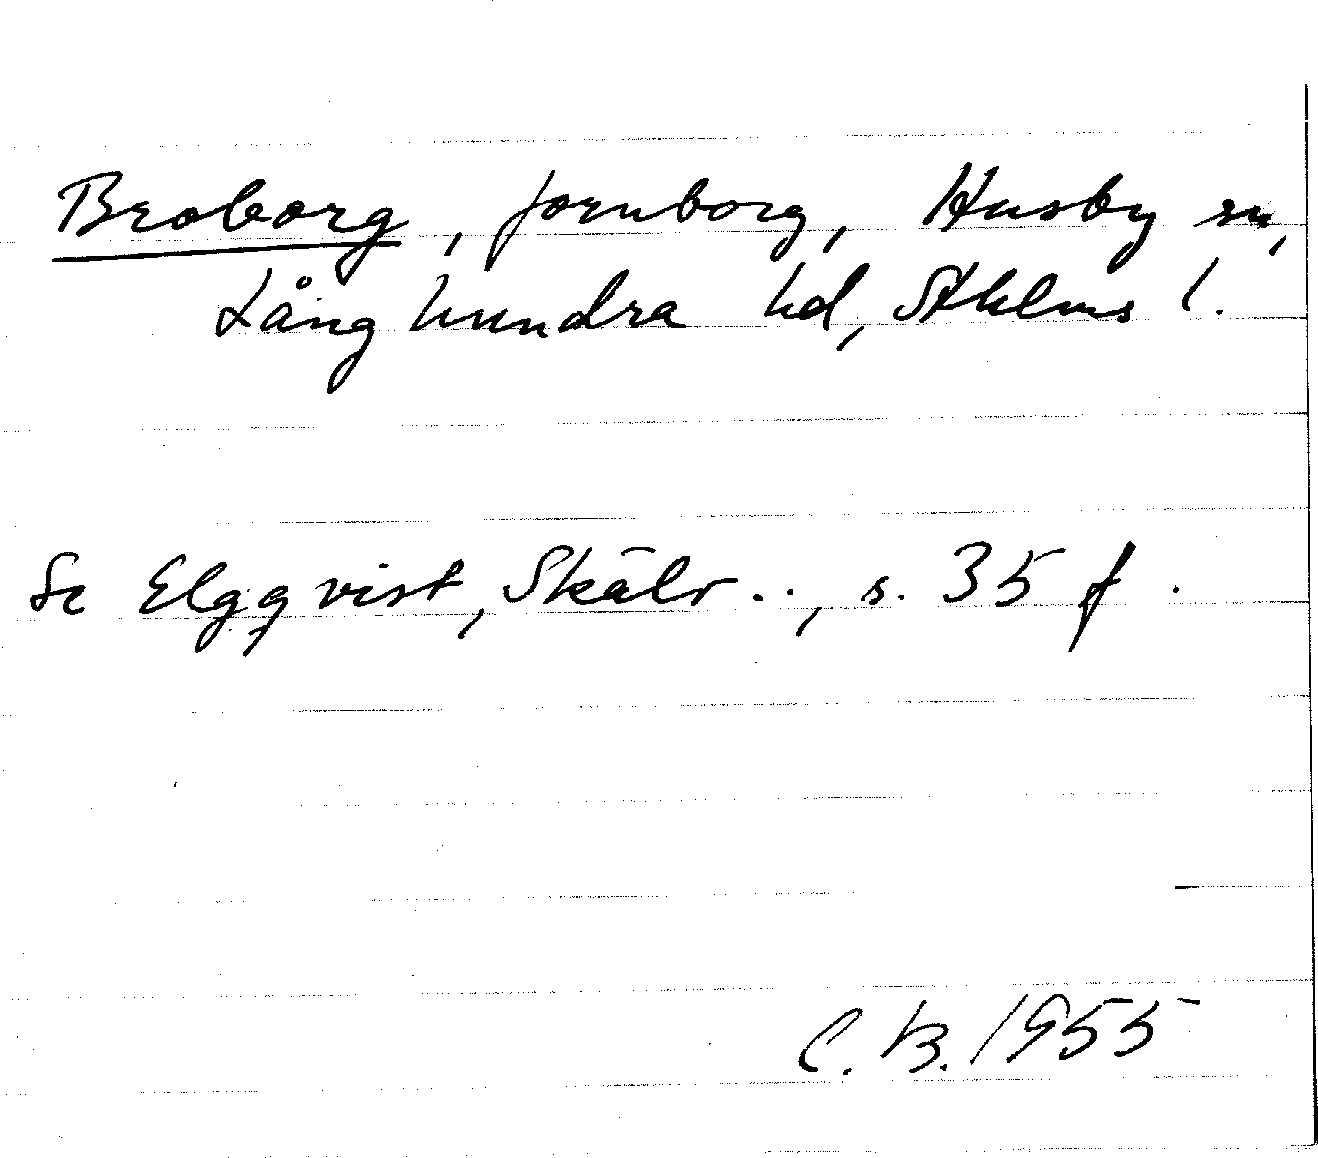 Broborg, fornborg, Husby sn,
Långhundra hd, Sthlms l.
Se Elgqvist, Skälv .., s. 35 f.
C. B. 1955